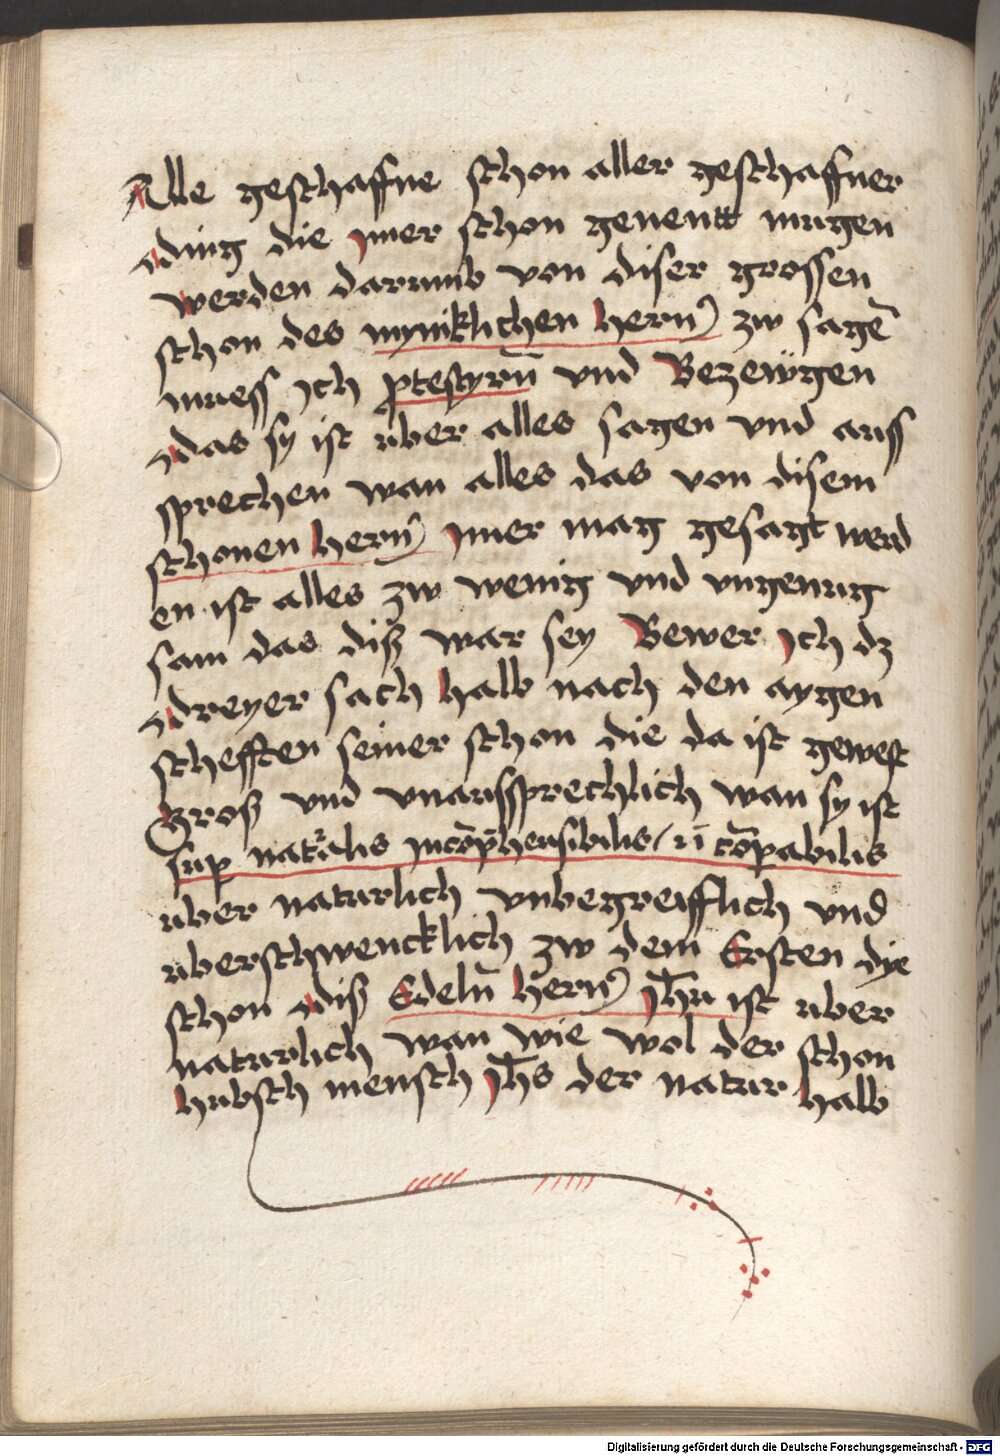 Alle geschaffne schon aller geschaffner
ding die ymer schon genentt mugen
werden darumb von diser grossen
schon des myniklichen hern) zw sagē
muess Jch ꝓtestyrn̄ vnd Bezewgen
das sy ist uber alles sagen vnd auss
sprechen wan alles das von disem
schonen hern) ymer mag gesagt werd
en ist alles zw wenig vnd vngenug
sam das diß war sey Bewer Jch dz
dreyer sach halb nach den aygen
schefften seiner schon die da ist gewest
Groß vnd vnaussprechlich wan sy ist
suꝑ natᷓalis jncōp̄hensibilis / cōꝑabilis
uber naturlich vnbegreifflich vnd
uberschwencklich zw dem Ersten dye
schon diß Edeln̄ hern) Jh̄u ist uber
naturlich wan wie wol der schon
hubsch mensch Jh̄s der natur halb
Digitalisierung gefördert durch die Deutsche Forschungsgemeinschaft - DFG